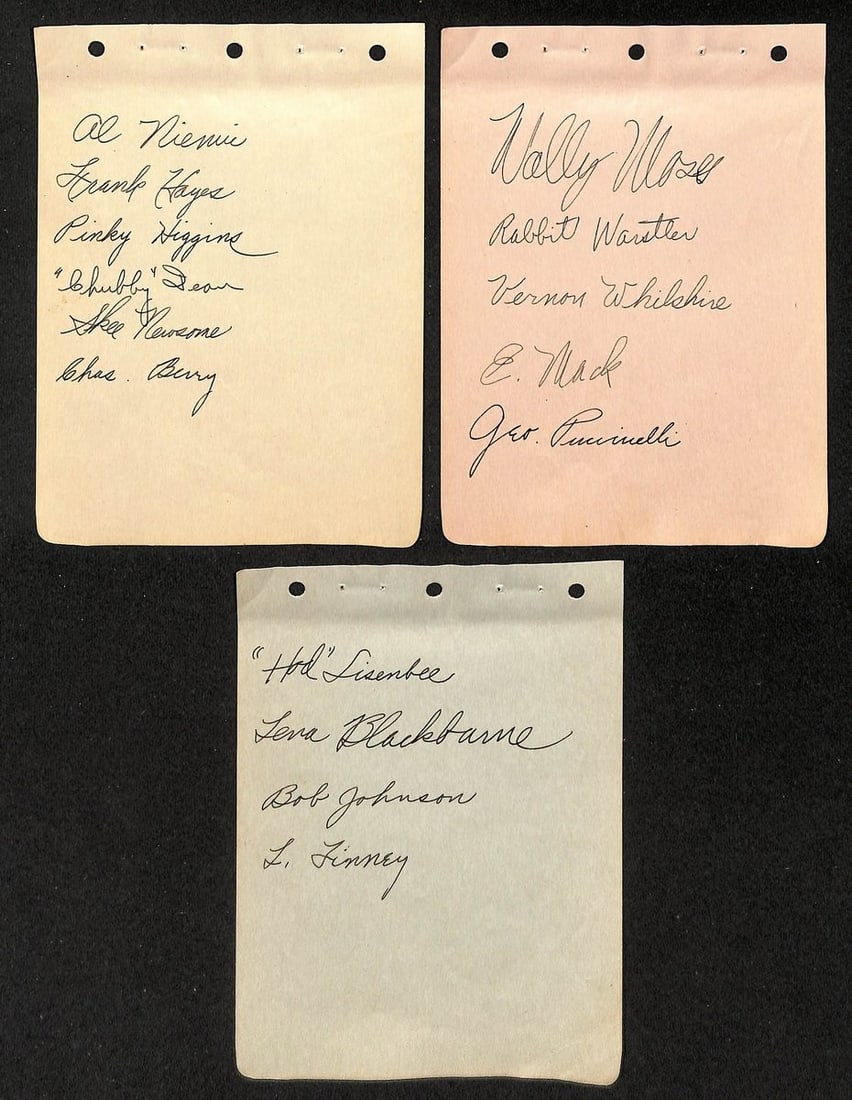 Al Niemic
Frank Hayes
Pinky Higgins
"Chubby" Dean
Skee Newsome
Chas. Berry
Wally Moses
Rabbit Warstler
Vernon Whilshire
E. Mack
Geo. Puccinelli
"Hod" Lisenbee
Lena Blackburne
Bob Johnson
L. Finney